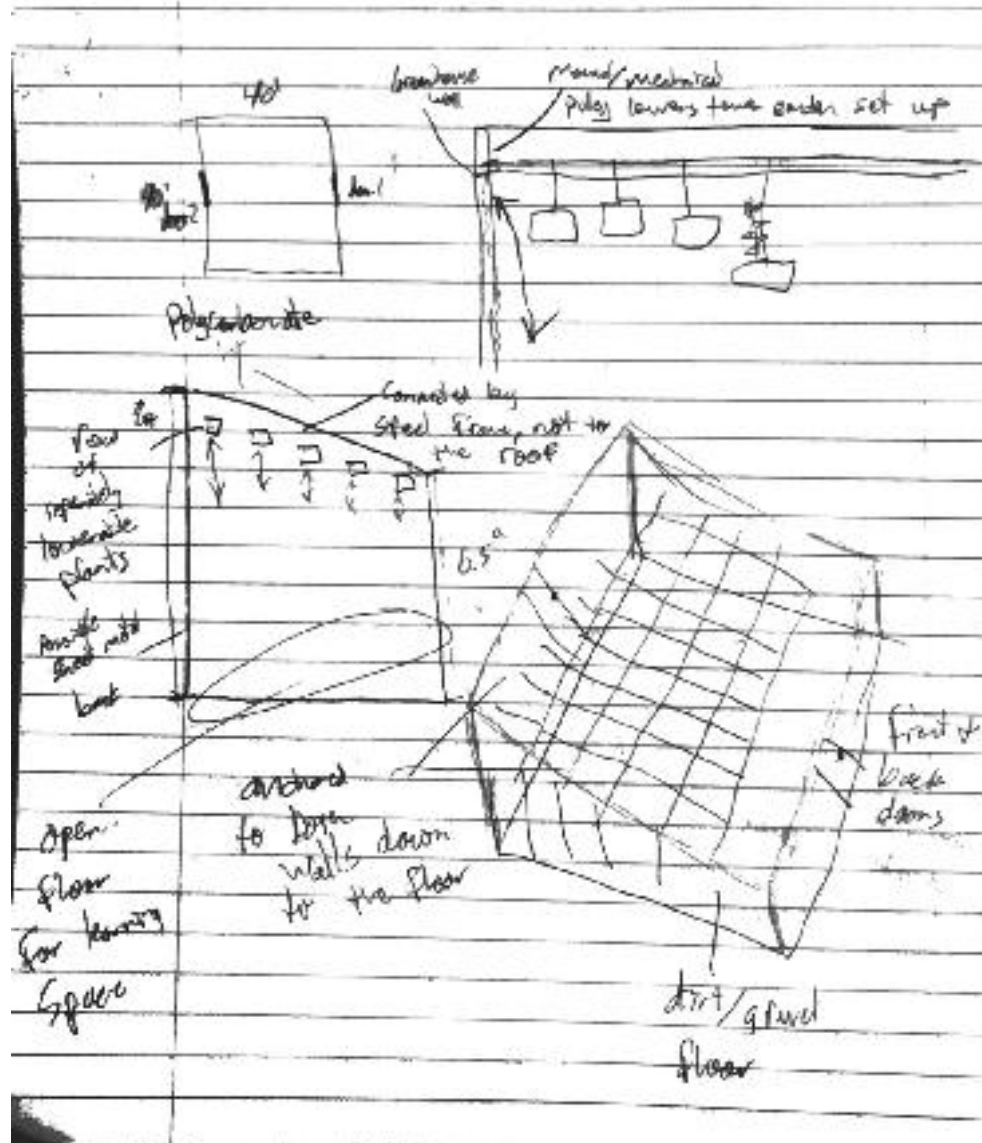 40'
door 1
door 2
Greenhouse
wall
Manual/mechanical
pulley lowers
set up
Polycarbonate
Connected by
steel frame, not to
the roof
row
of
lowerable
plants
Possible
sheet metal
back
open
floor
for learning
Space
anchored
to
walls down
to the floor
front &
back
doors
dirt/gravel
floor